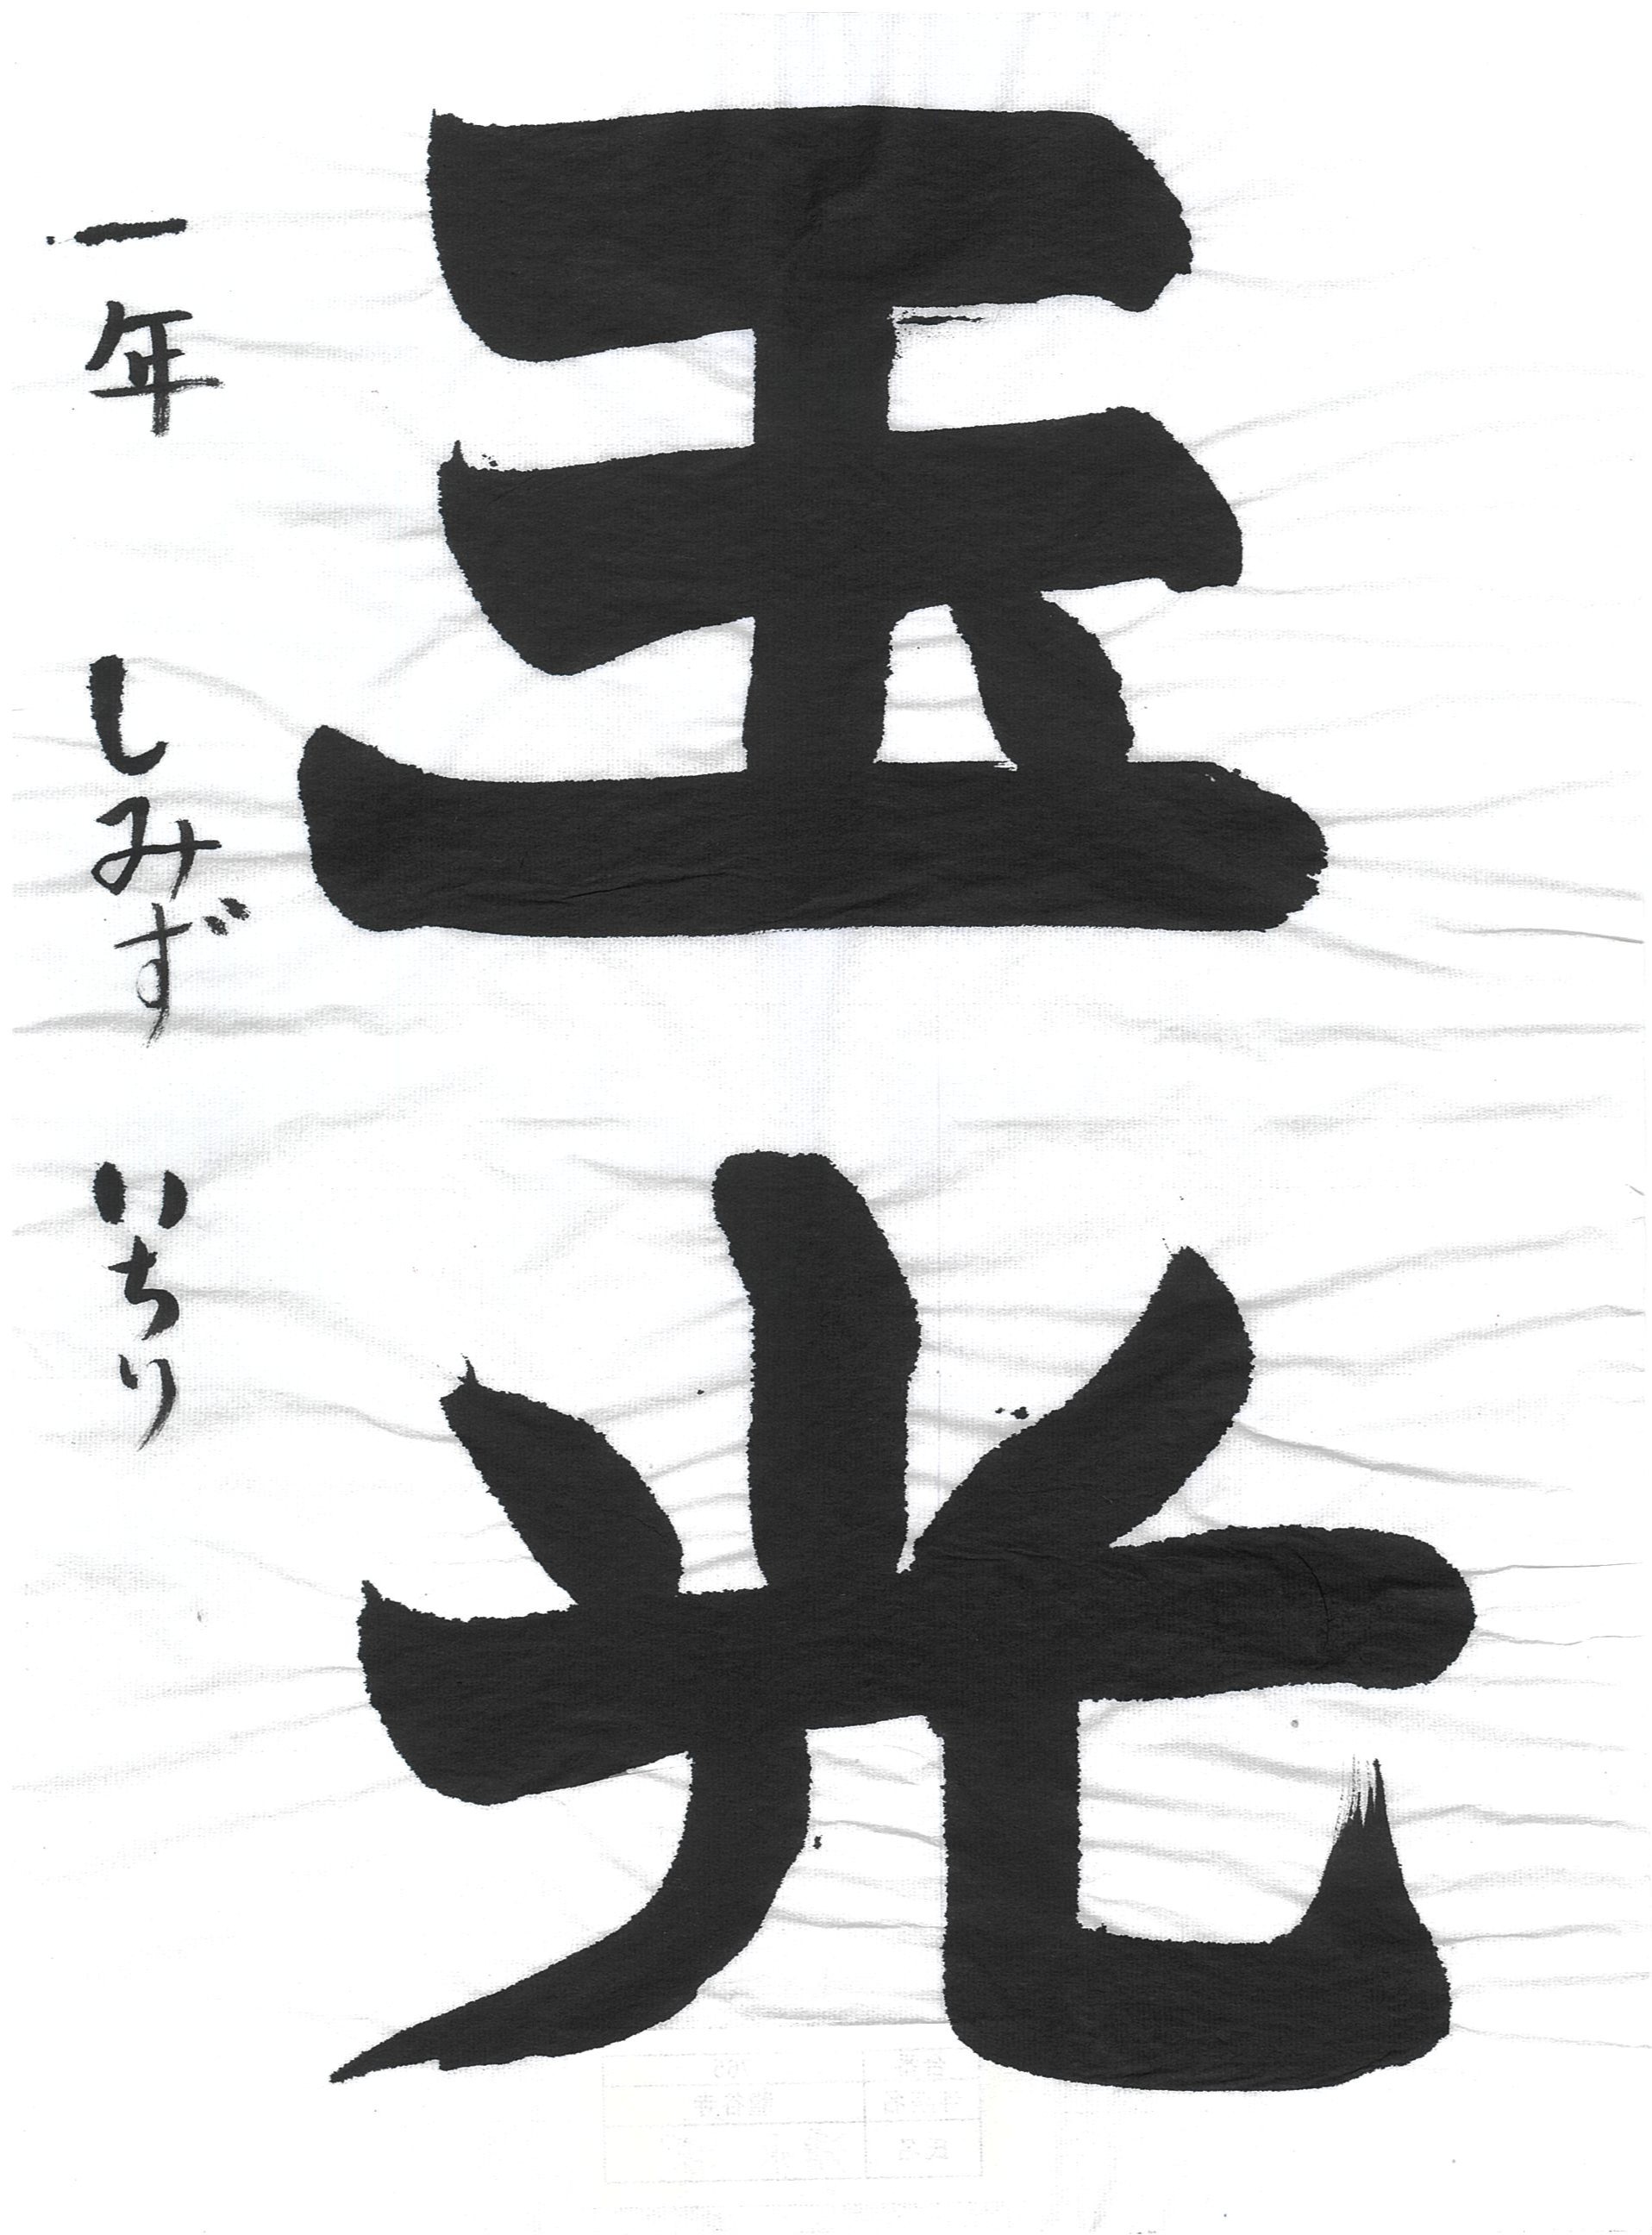 玉光
一年 しみず いちり